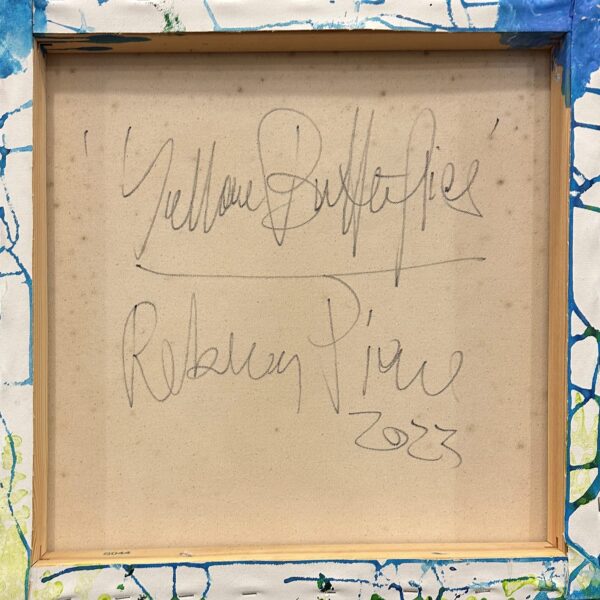 'Yellow Butterflies'
Rebecca Pierce
2023
8044